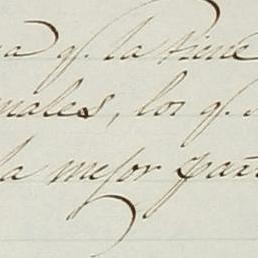 a q. la tiene
nales, los q.
la mejor part